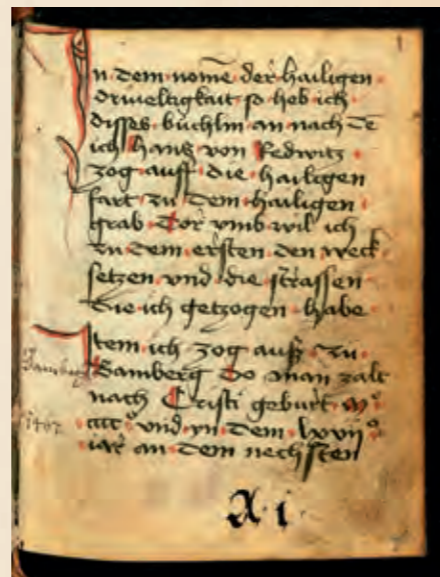 1
In dem nome der hailigen
driueltigkait so heb ich
disses büchlin an nach de
ich hans von Redwitz
zog auff die hailigen
fart zu dem hailigen
grab Dor vmb wil ich
zu dem ersten den weck
setzen vnd die strassen
die ich getzogen habe
Item ich zog auß zu
Bamberg Do man zalt
nach Cristi geburt M°
cccc° vnd yn dem lxvii°
iar an dem nechsten
Bamberg
1467
A. i.